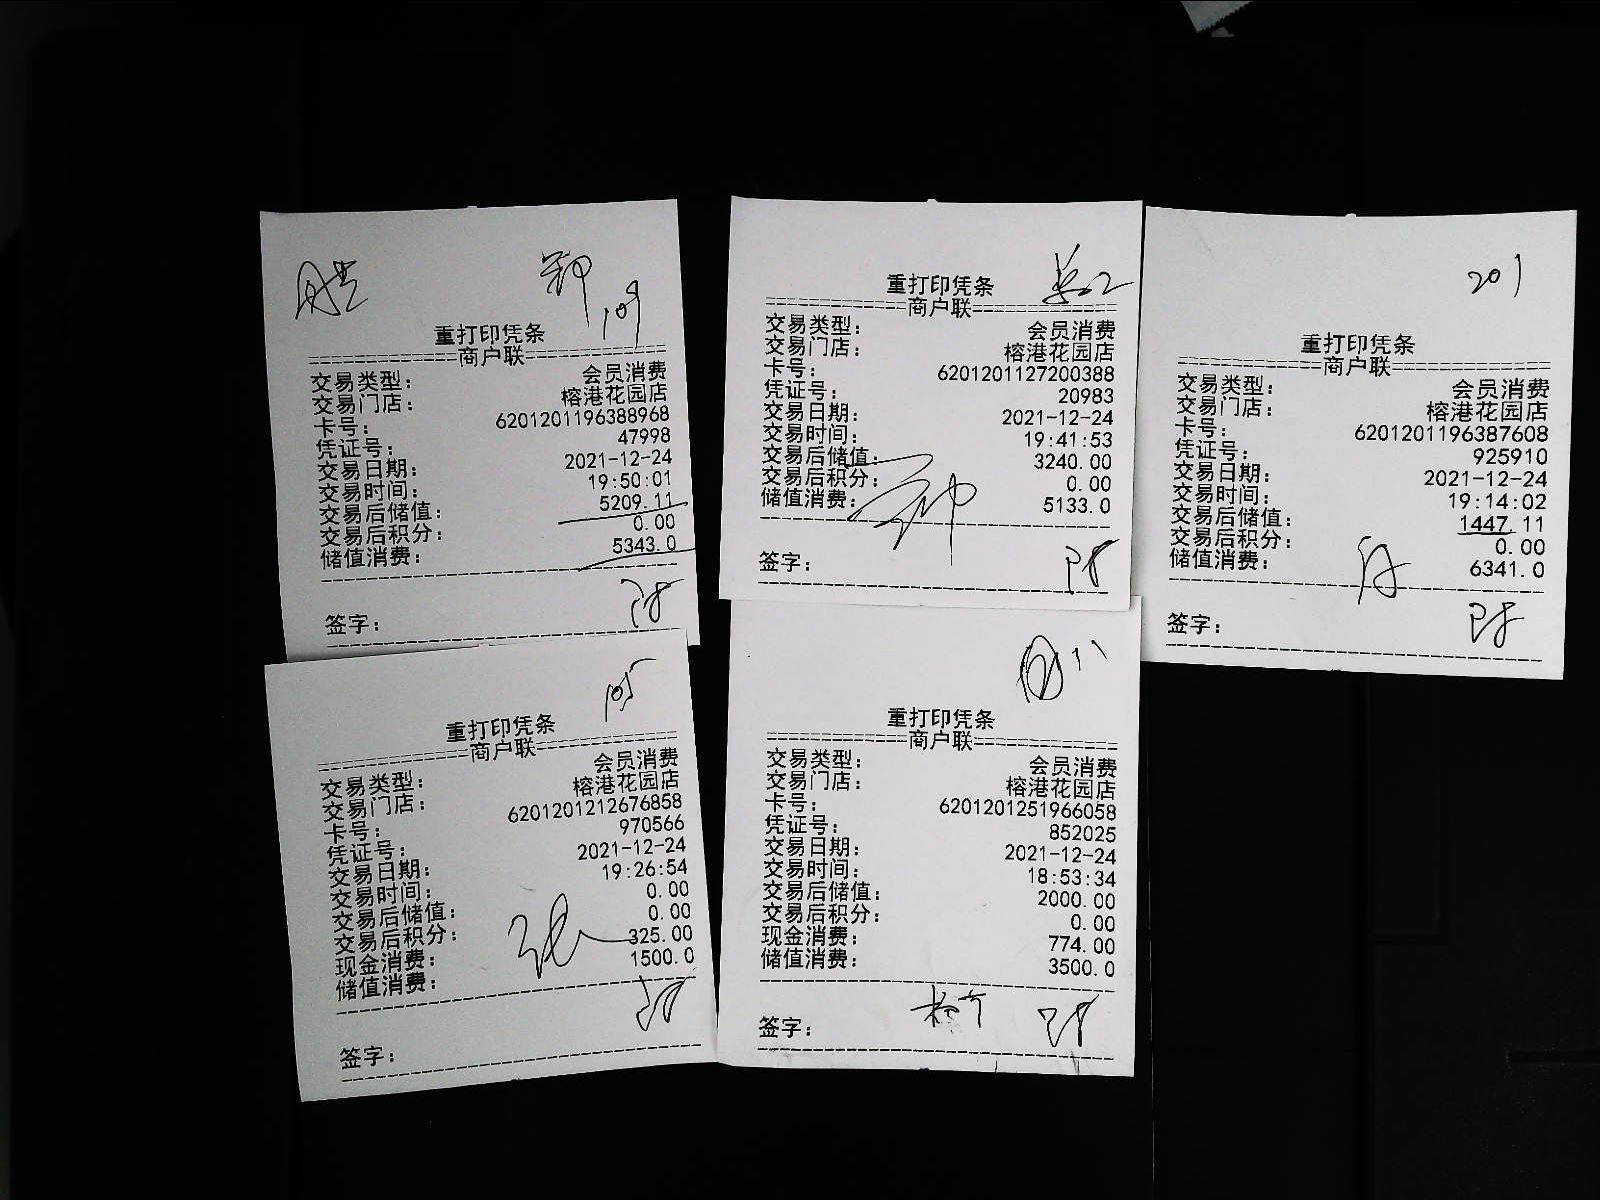 109
重打印凭条
商户联
交易类型: 会员消费
交易门店: 榕港花园店
卡号: 6201201196388968
凭证号: 47998
交易日期: 2021-12-24
交易时间: 19:50:01
交易后储值: 5209.11
交易后积分: 0.00
储值消费: 5343.0
签字:
重打印凭条
商户联
交易类型: 会员消费
交易门店: 榕港花园店
卡号: 6201201127200388
凭证号: 20983
交易日期: 2021-12-24
交易时间: 19:41:53
交易后储值: 3240.00
交易后积分: 0.00
储值消费: 5133.0
签字:
201
重打印凭条
商户联
交易类型: 会员消费
交易门店: 榕港花园店
卡号: 6201201196387608
凭证号: 925910
交易日期: 2021-12-24
交易时间: 19:14:02
交易后储值: 1447.11
交易后积分: 0.00
储值消费: 6341.0
签字:
105
重打印凭条
商户联
交易类型: 会员消费
交易门店: 榕港花园店
卡号: 6201201212676858
凭证号: 970566
交易日期: 2021-12-24
交易时间: 19:26:54
交易后储值: 0.00
交易后积分: 0.00
现金消费: 325.00
储值消费: 1500.0
签字:
重打印凭条
商户联
交易类型: 会员消费
交易门店: 榕港花园店
卡号: 6201201251966058
凭证号: 852025
交易日期: 2021-12-24
交易时间: 18:53:34
交易后储值: 2000.00
交易后积分: 0.00
现金消费: 774.00
储值消费: 3500.0
签字: